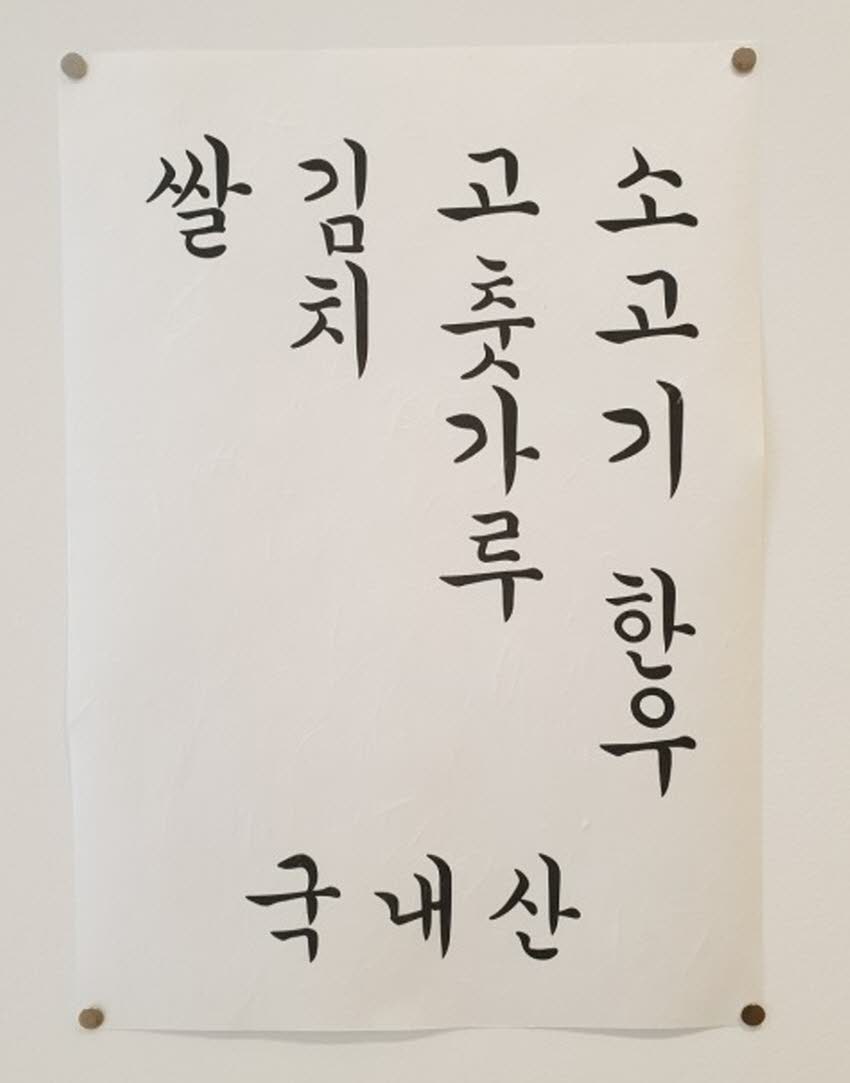 소고기 한우
고춧가루
김치
쌀
국내산